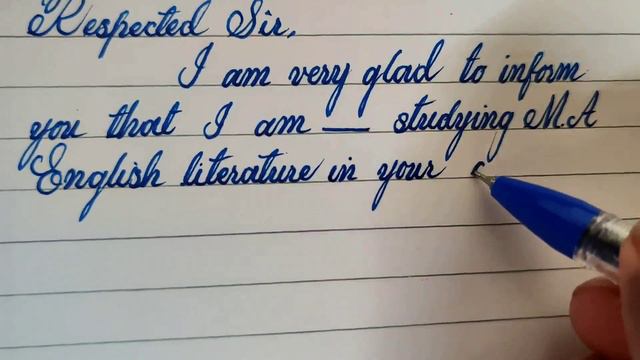 Respected Sir,
I am very glad to inform
you that I am __ studying M.A
English literature in your